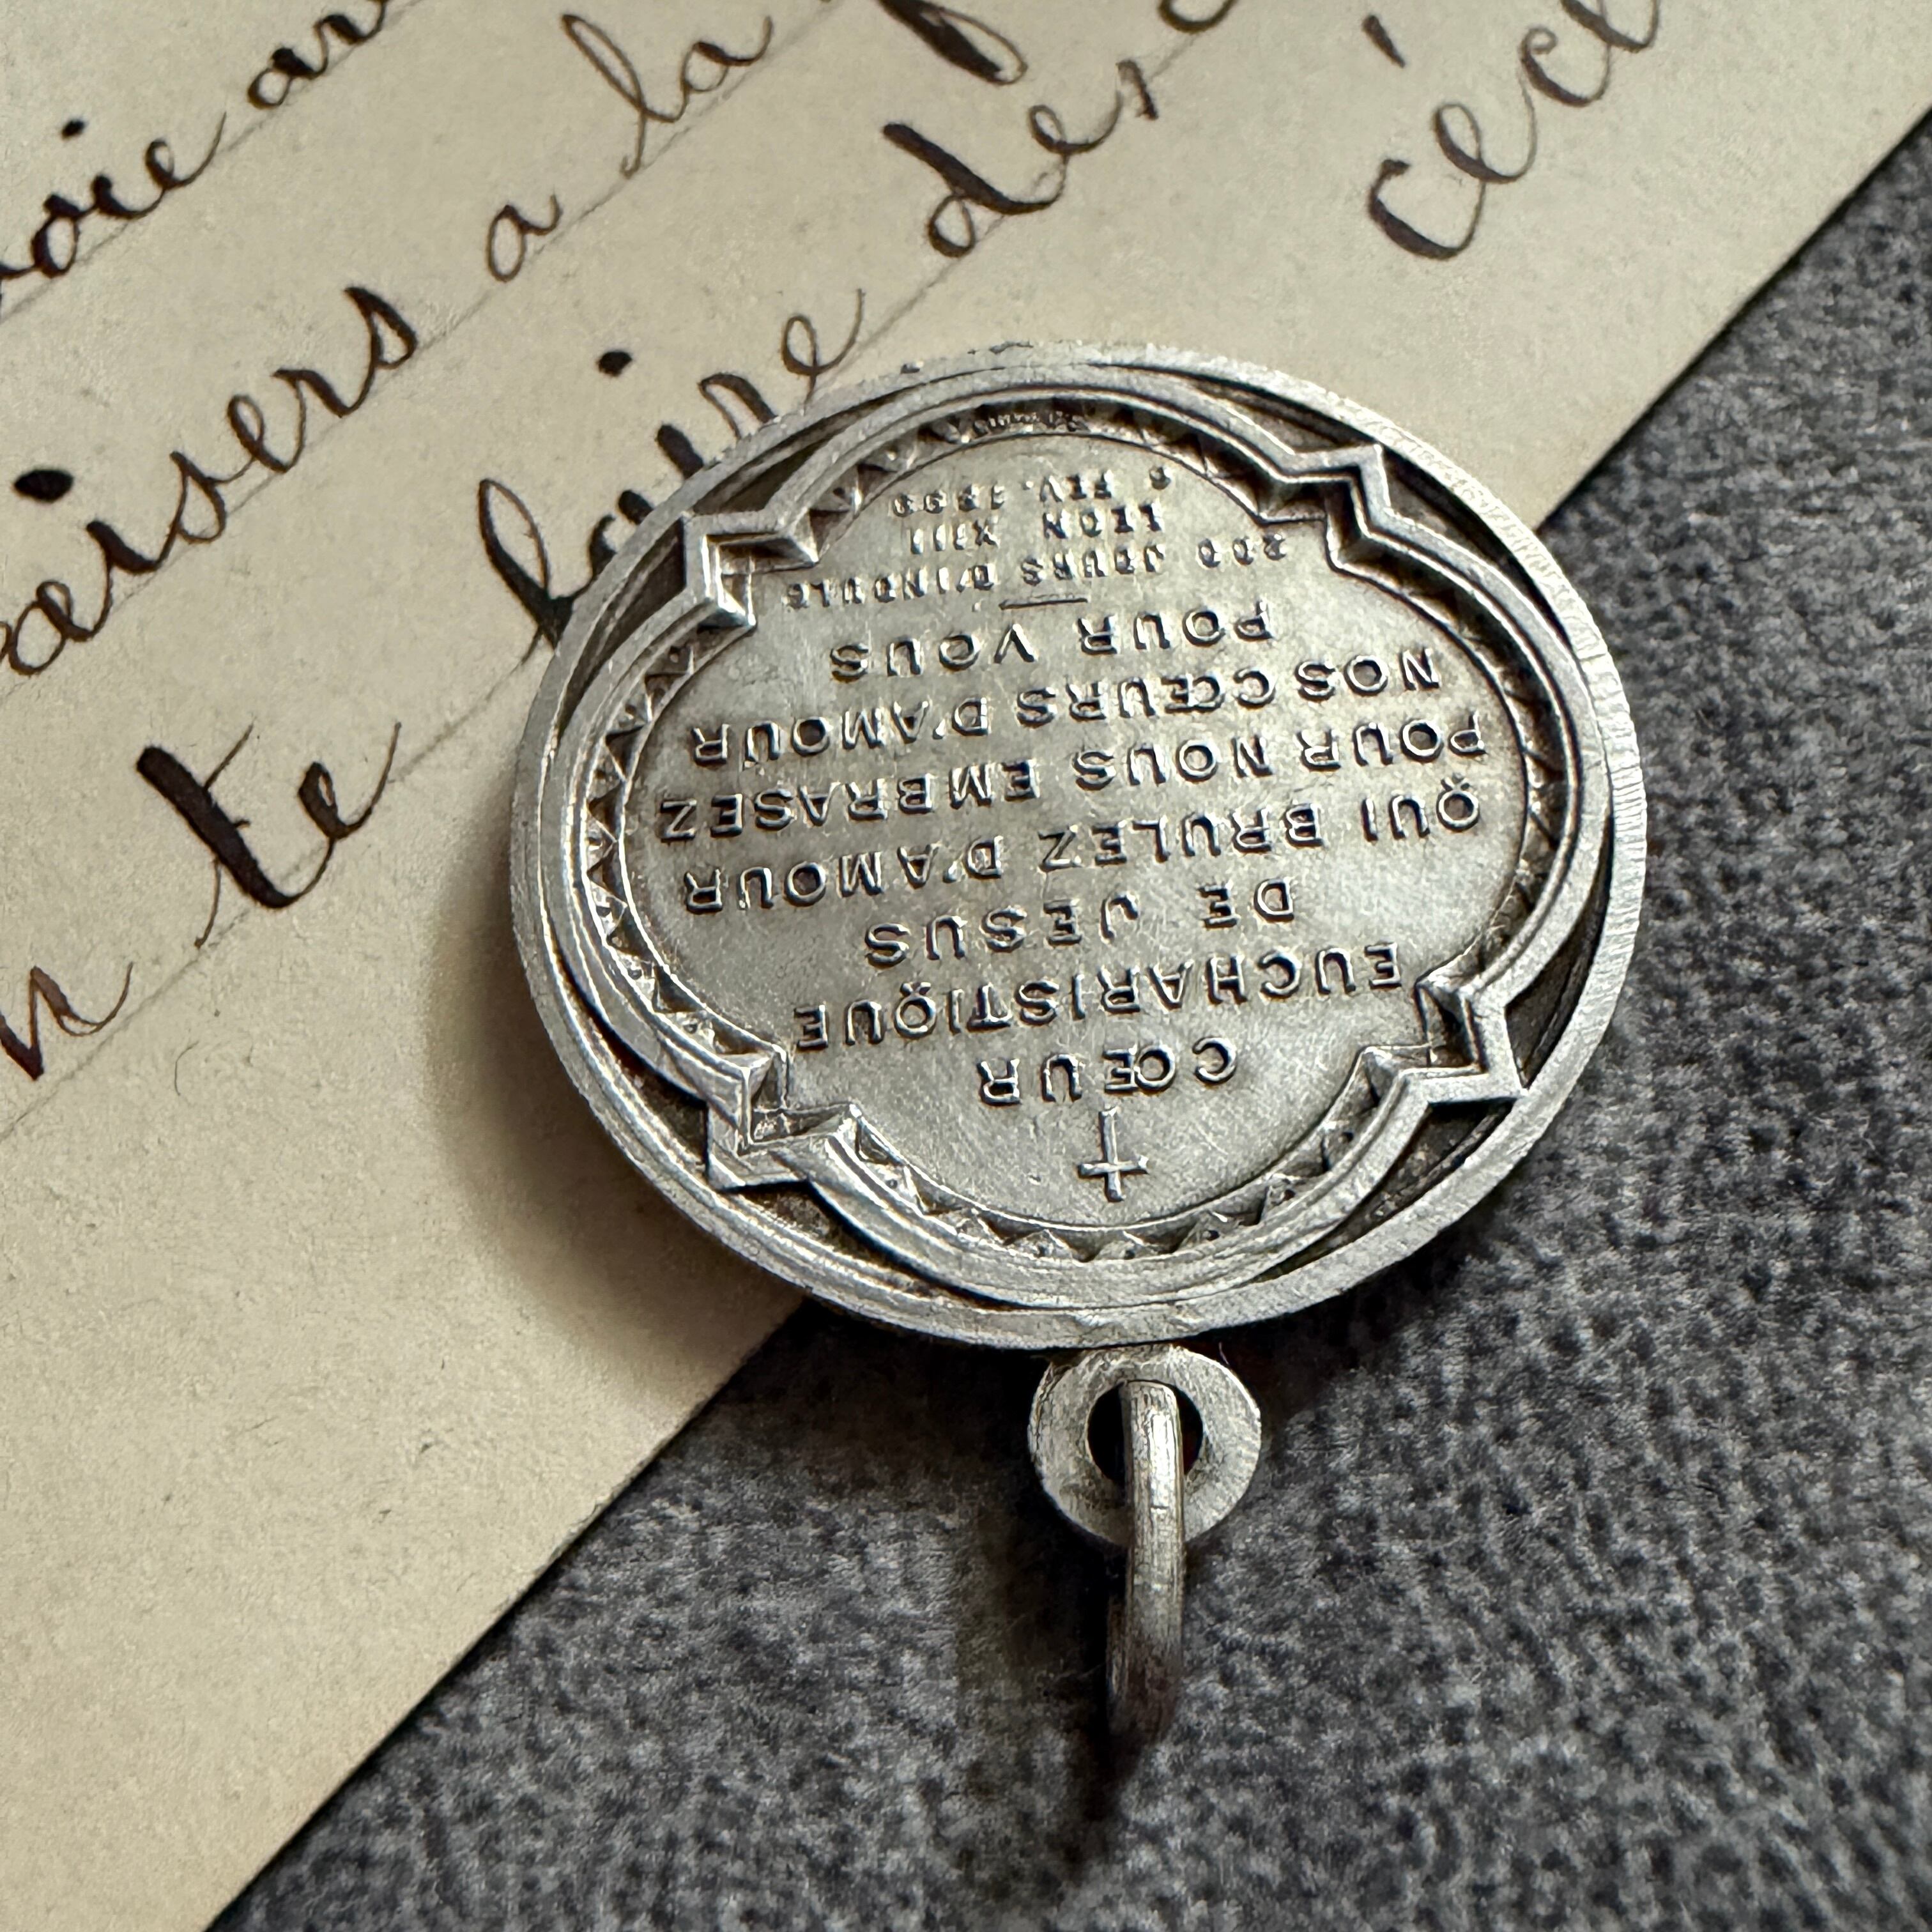 voie
baisers a la
te faire des
n
✝
CŒUR
EUCHARISTIQUE
DE JESUS
QUI BRULEZ D'AMOUR
POUR NOUS EMBRASEZ
NOS CŒURS D'AMOUR
POUR VOUS
200 JOURS D'INDULG
LEON XIII
6 FEV. 1899